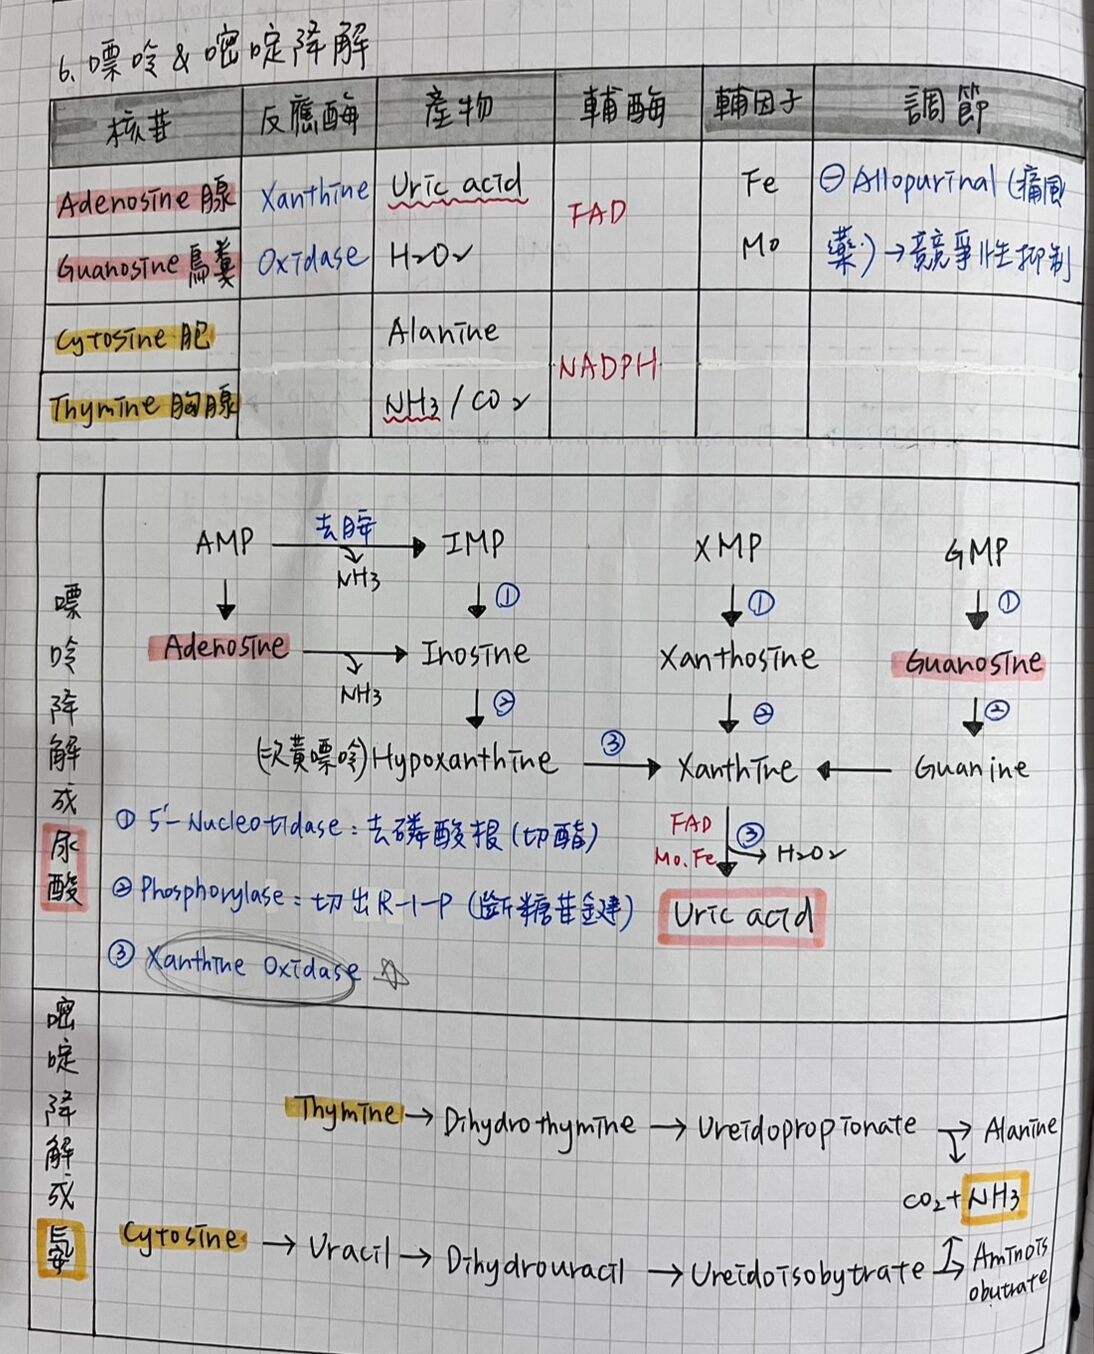 6. 嘌呤&嘧啶降解
核苷 反應酶 產物 輔酶 輔因子 調節
Adenosine 腺 Xanthine Uric acid FAD Fe ⊖ Allopurinal (痛風
Guanosine 鳥糞 Oxidase H2O2 Mo 藥) → 競爭性抑制
Cytosine 胞 Alanine NADPH
Thymine 胸腺 NH3 / CO2
嘌呤降解成尿酸
AMP 去胺 → IMP XMP GMP
NH3 ① ① ①
Adenosine → Inosine Xanthosine Guanosine
NH3 ② ② ②
(次黃嘌呤)Hypoxanthine ③ → Xanthine ← Guanine
① 5'-Nucleotidase : 去磷酸根 (切酯)
FAD ③
Mo. Fe → H2O2
② Phosphorylase : 切出 R-1-P (斷糖苷鍵)
Uric acid
③ Xanthine Oxidase ☆
嘧啶降解成氨
Thymine → Dihydrothymine → Ureidopropionate → Alanine
CO2 + NH3
Cytosine → Uracil → Dihydrouracil → Ureidoisobytrate → Aminois
obutrate